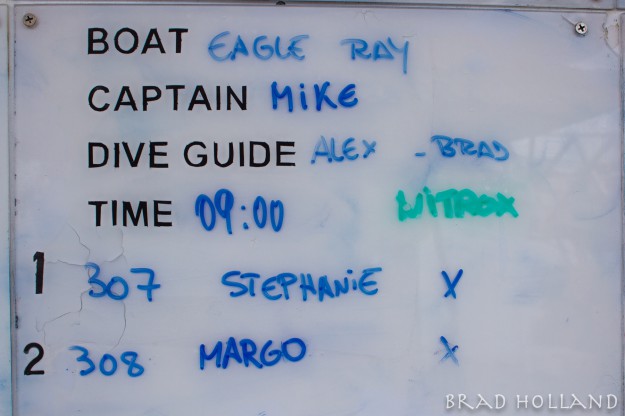 BOAT EAGLE RAY
CAPTAIN MiKE
DIVE GUIDE ALEX - BRAD
TIME 09:00 NiTROX
1 307 STEPHANiE X
2 308 MARGO X
BRAD HOLLAND